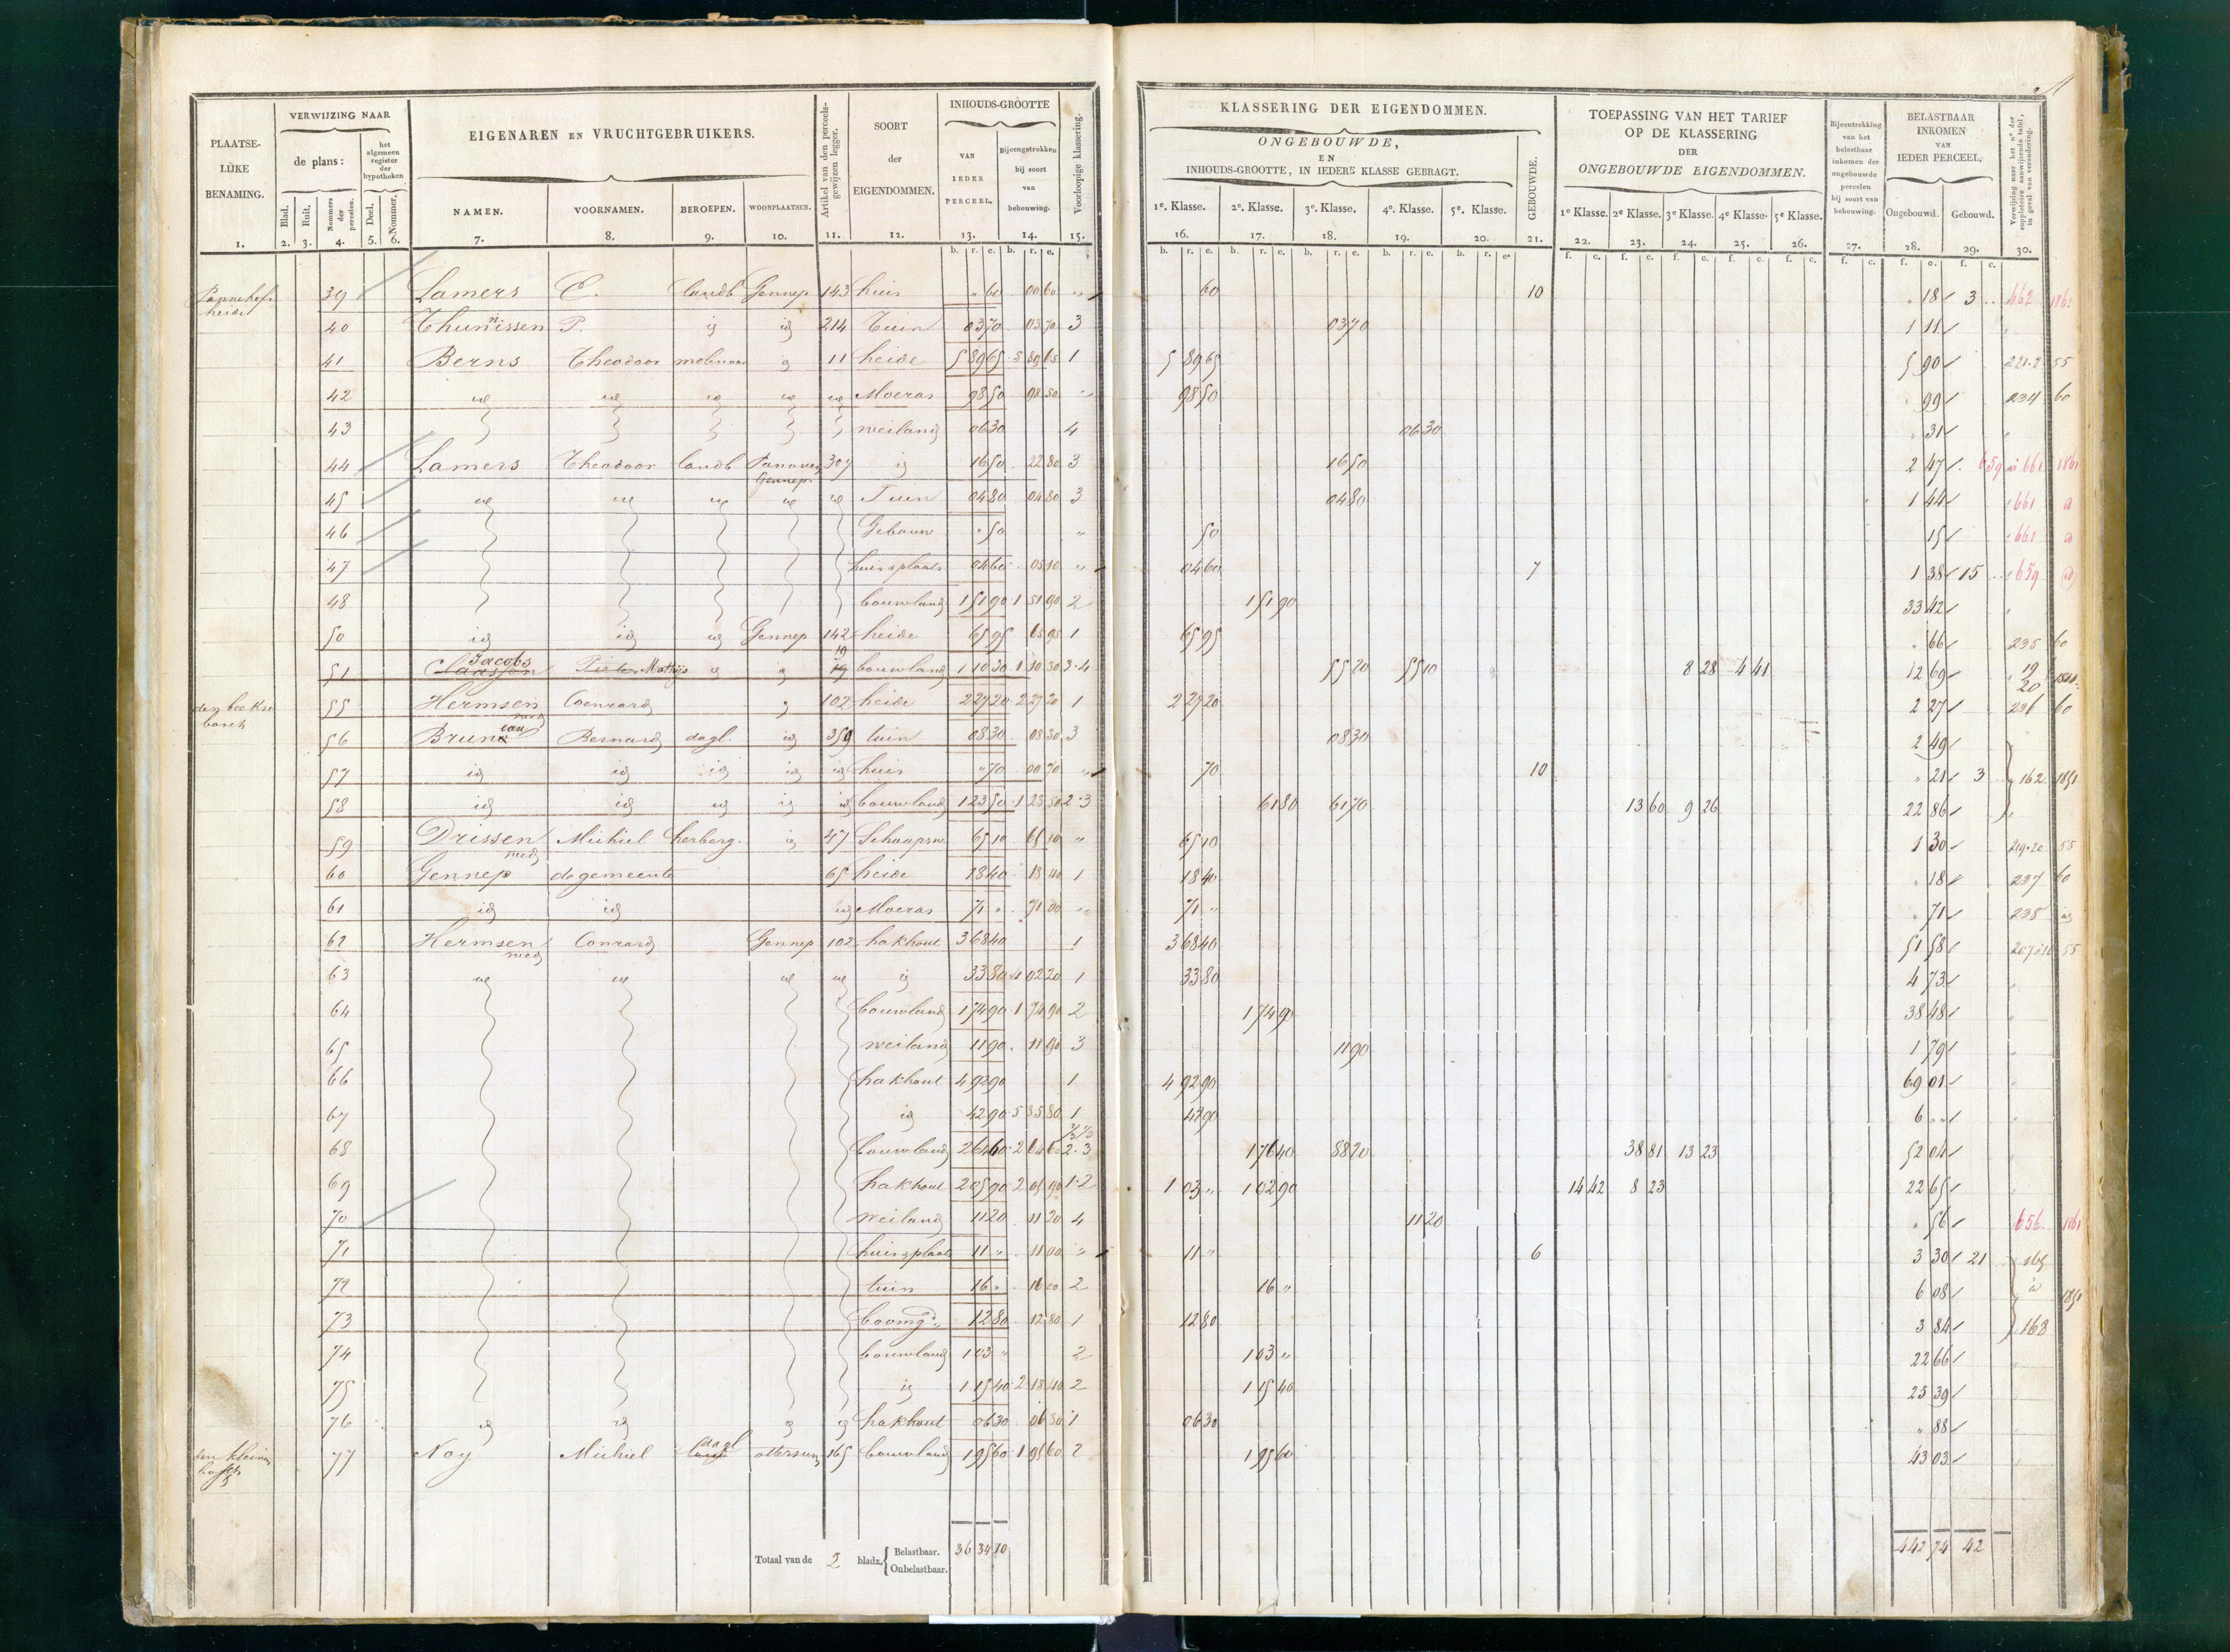 PLAATSE-
LIJKE
BENAMING.
VERWIJZING NAAR
de plans:
het
algemeen
register
der
hypotheken
Blad.
Ruit.
Nommers
der
perceelen.
Deel.
Nommer.
EIGENAREN EN VRUCHTGEBRUIKERS.
NAMEN.
VOORNAMEN.
BEROEPEN.
WOONPLAATSEN.
Artikel van den perceels-
gewijzen legger.
SOORT
der
EIGENDOMMEN.
INHOUDS-GROOTTE
VAN
IEDER
PERCEEL.
Bijeengetrokken
bij soort
van
bebouwing.
Voorloopige klassering.
1. 2. 3. 4. 5. 6. 7. 8. 9. 10. 11. 12. 13. 14. 15.
b. r. e. b. r. e.
KLASSERING DER EIGENDOMMEN.
ONGEBOUWDE,
EN
INHOUDS-GROOTTE, IN IEDERE KLASSE GEBRAGT.
GEBOUWDE.
1e. Klasse. 2e. Klasse. 3e. Klasse. 4e. Klasse. 5e. Klasse.
TOEPASSING VAN HET TARIEF
OP DE KLASSERING
DER
ONGEBOUWDE EIGENDOMMEN.
1e Klasse. 2e Klasse. 3e Klasse. 4e Klasse. 5e Klasse.
Bijeentrekking
van het
belastbaar
inkomen der
ongebouwde
perceelen
bij soort van
bebouwing.
BELASTBAAR
INKOMEN
VAN
IEDER PERCEEL.
Ongebouwd. Gebouwd.
Verwijzing naar het no der
suppletoire aanwijzende tafel,
in geval van verandering.
16. 17. 18. 19. 20. 21. 22. 23. 24. 25. 26. 27. 28. 29. 30.
heide 39 Lamers C. landb Gennep 143 huis " 60 00 60 " 60 10 " 18 3 " 662 1862
40 Thunissen P. id id 214 Tuin 03 70 03 70 3 03 70 1 11 "
41 Berns Theodoor molenaar id 11 heide 5 89 65 5 89 65 1 5 89 65 5 90 221.2 55
42 id id id id id Moeras 98 50 98 50 " 98 50 " 99 234 60
43 weiland 06 30 4 06 30 " 31 "
44 Lamers Theodoor landb Gennep 307 id 16 50 22 80 3 16 50 2 47 659 661 1861
45 id id id id id Tuin 04 80 04 80 3 04 80 1 44 661 id
46 Gebouw " 50 " 50 " 15 661 id
47 huisplaats 04 60 05 10 " 04 60 7 1 38 15 " 659 id
48 bouwland 1 51 90 1 51 90 2 1 51 90 33 42 "
50 id id id Gennep 142 heide 65 95 65 95 1 65 95 " 66 235 60
51 Claassen Jacobs Pieter Mathijs id id 19 bouwland 1 10 30 1 10 30 3.4 55 20 55 10 8 28 4 41 12 69 19 20
55 Hermsen wed Coenrard id 102 heide 2 27 20 2 27 20 1 2 27 20 2 27 236 60
56 Bernard dagl. id 359 tuin 08 30 08 30 3 08 30 2 49
57 id id id id id huis " 70 00 70 " 70 10 " 21 3 " 162 1851
58 id id id id id bouwland 1 23 50 1 23 50 2.3 61 80 61 70 13 60 9 26 22 86
59 Drissen wed Michiel herberg. id 47 65 10 65 10 " 65 10 1 30 219.20 55
60 Gennep de gemeente 65 heide 18 40 18 40 1 18 40 " 18 237 60
61 id id id Moeras 71 " 71 00 " 71 " " 71 238 id
62 Hermsen wed Conrard Gennep 102 hakhout 3 68 40 1 3 68 40 51 58 55
63 id id id id id 33 80 4 02 20 1 33 80 4 73 "
64 bouwland 1 74 90 1 74 90 2 1 74 90 38 48 "
65 weiland 11 90 11 90 3 11 90 1 79 "
66 hakhout 4 92 90 1 4 92 90 69 01 "
67 id 42 90 5 35 80 1 42 90 6 " "
68 bouwland 2 64 60 2 64 60 2.3 1 76 40 88 20 38 81 13 23 52 04 "
69 hakhout 2 05 90 2 05 90 1.2 1 03 " 1 02 90 14 42 8 23 22 65 "
70 weiland 11 20 11 20 4 11 20 " 56 656 1861
71 huisplaats 11 " 11 00 " 11 " 6 3 30 21 " 165
72 tuin 16 " 16 00 2 16 " 6 08 à 1851
73 boomgd. 12 80 12 80 1 12 80 3 84 168
74 bouwland 1 03 " 2 1 03 " 22 66 "
75 id 1 15 40 2 18 40 2 1 15 40 25 39 "
76 id id id id hakhout 06 30 06 30 1 06 30 " 88 "
77 Noy Michiel dagl ottersum 165 bouwland 1 95 60 1 95 60 2 1 95 60 43 03
Totaal van de 2 bladz. Belastbaar. 36 34 80
Onbelastbaar.
442 74 42